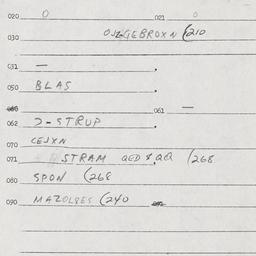 020 0 021 0
030 (210
031 —
050 BLAS
061 —
062 J-STRUP
070 CEJXN
071 STRAM QED & QQ (268
080 SPON (268
090 MAZOLBES (240